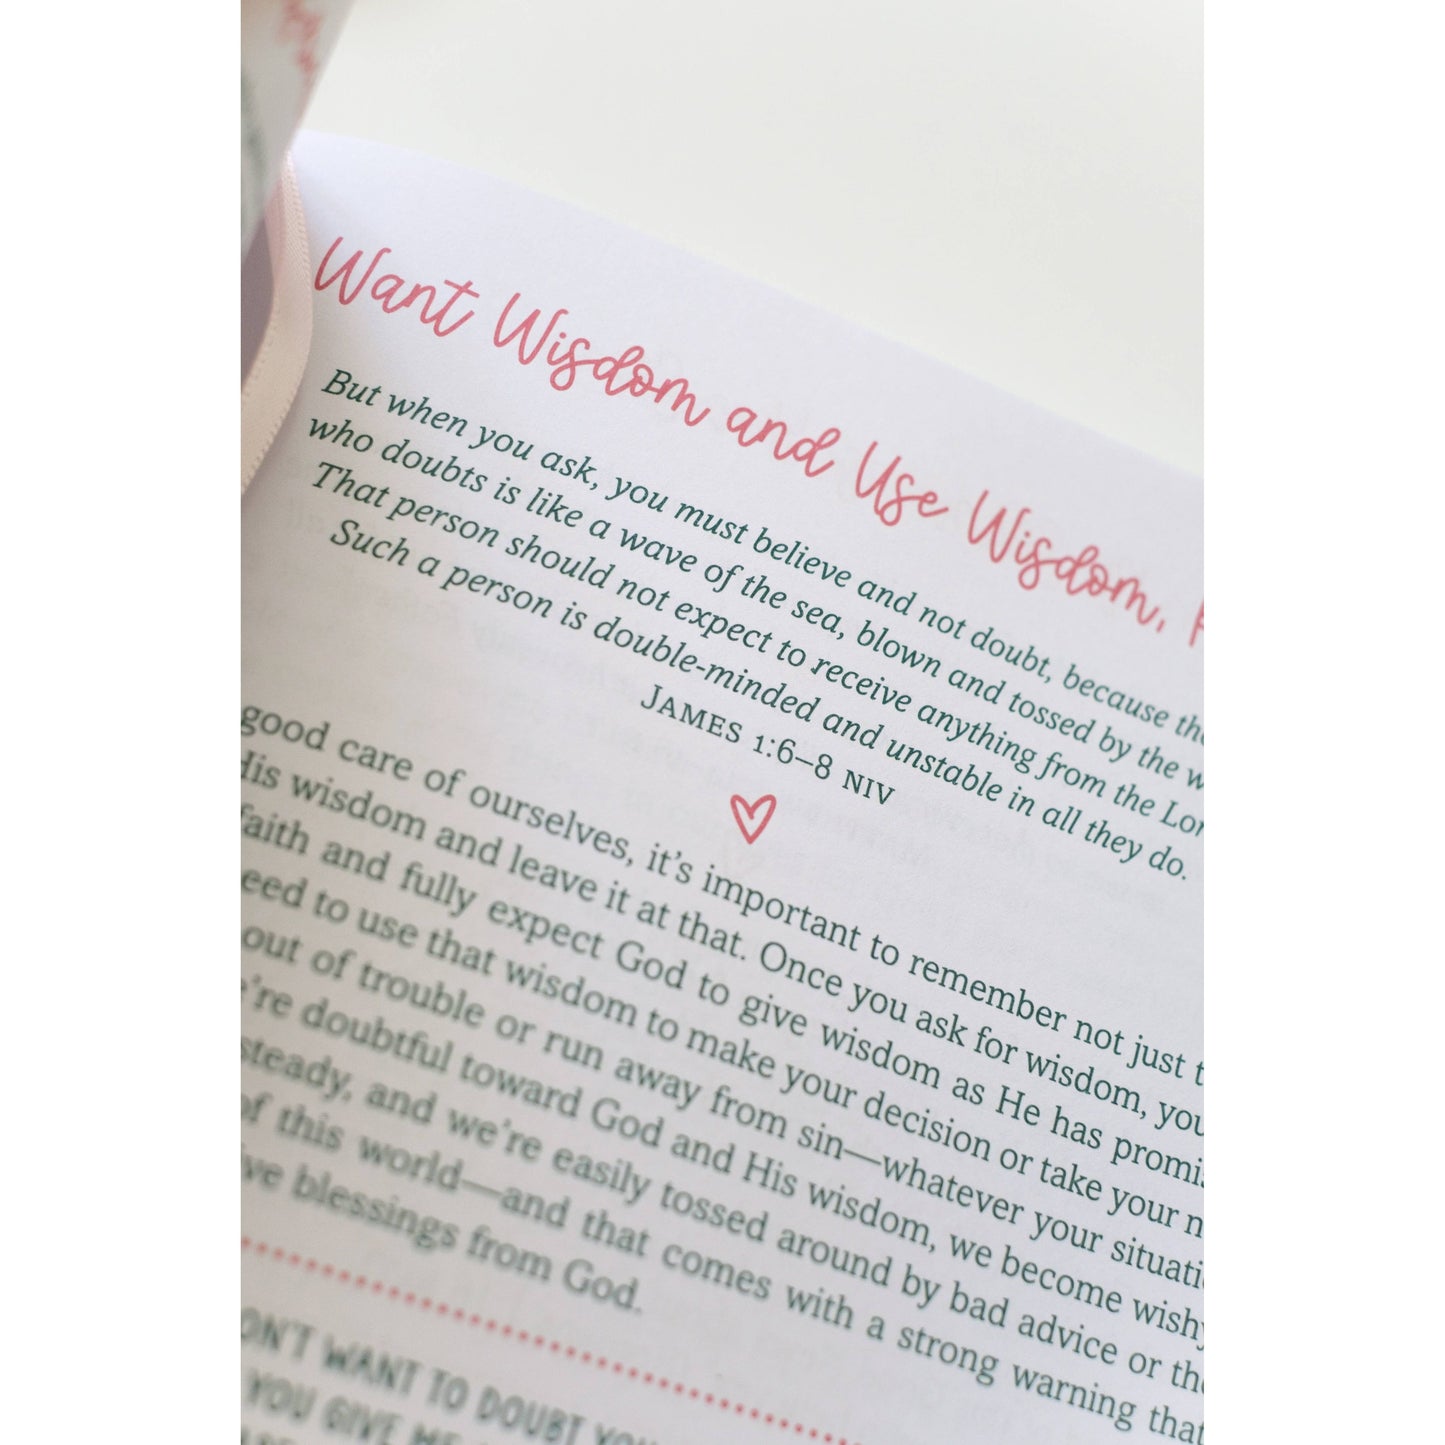 Want Wisdom and Use Wisdom,
But when you ask, you must believe and not doubt, because
who doubts is like a wave of the sea, blown and tossed by the
That person should not expect to receive anything from the
Such a person is double-minded and unstable in all they do.
JAMES 1:6–8 NIV
good care of ourselves, it's important to remember not just
His wisdom and leave it at that. Once you ask for wisdom, you
faith and fully expect God to give wisdom as He has
need to use that wisdom to make your decision or take your
out of trouble or run away from sin—whatever your
're doubtful toward God and His wisdom, we become
steady, and we're easily tossed around by bad advice or
of this world—and that comes with a strong warning that
blessings from God.
WANT TO DOUBT
YOU GIVE ME